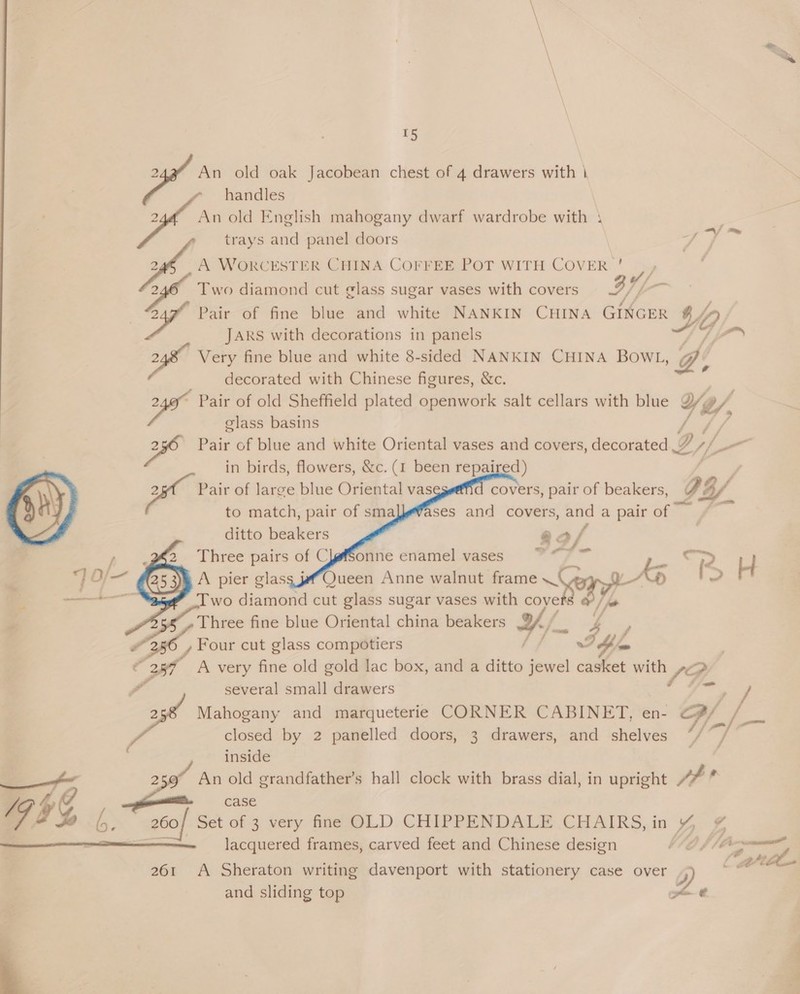 15
243 An old oak Jacobean chest of 4 drawers with
handles
244 An old English mahogany dwarf wardrobe with
trays and panel doors
245 A WORCESTER CHINA COFFEE POT WITH COVER
246 Two diamond cut glass sugar vases with covers
247 Pair of fine blue and white NANKIN CHINA GINGER
JARS with decorations in panels
248 Very fine blue and white 8-sided NANKIN CHINA BOWL,
decorated with Chinese figures, &c.
249 Pair of old Sheffield plated openwork salt cellars with blue
glass basins
250 Pair of blue and white Oriental vases and covers, decorated
in birds, flowers, &c. (1 been repaired)
251 Pair of large blue Oriental vases and covers, pair of beakers,
to match, pair of small vases and covers, and a pair of
ditto beakers
252 Three pairs of Cloisonne enamel vases
70/- 253 A pier glass in Queen Anne walnut frame
254 Two diamond cut glass sugar vases with covers
255 Three fine blue Oriental china beakers
256 Four cut glass compotiers
257 A very fine old gold lac box, and a ditto jewel casket with
several small drawers
258 Mahogany and marqueterie CORNER CABINET, en-
closed by 2 panelled doors, 3 drawers, and shelves
inside
259 An old grandfather's hall clock with brass dial, in upright
case
260 Set of 3 very fine OLD CHIPPENDALE CHAIRS, in
lacquered frames, carved feet and Chinese design
261 A Sheraton writing davenport with stationery case over
and sliding top